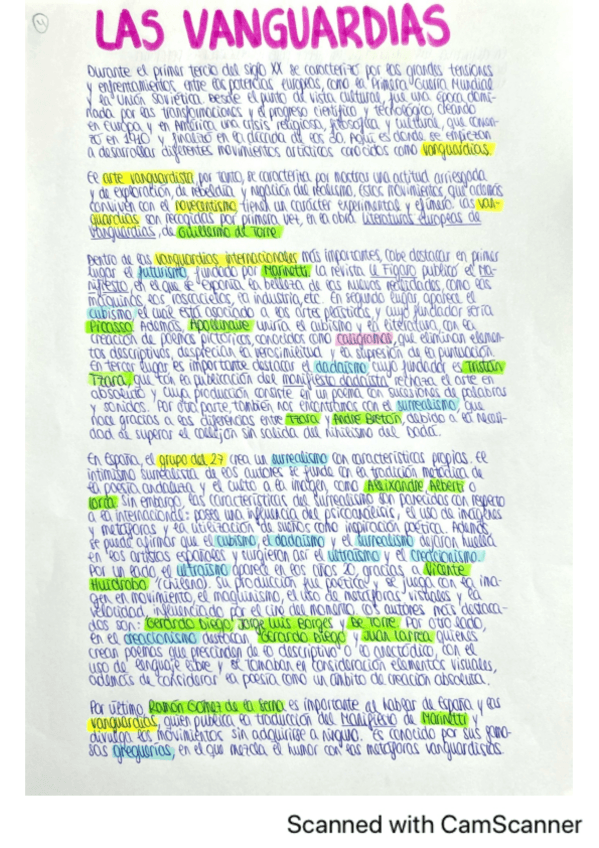 4
LAS VANGUARDIAS
Durante el primer tercio del siglo XX se caracterizó por las grandes tensiones
y enfrentamientos entre las potencias europeas, como la Primera Guerra Mundial
y la Unión Soviética. Desde el punto de vista cultural, fue una época domi-
nada por las transformaciones y el progreso científico y tecnológico, dejando
en Europa y en América una crisis religiosa, filosófica y cultural, que comen-
zó en 1910 y finalizó en la década de los 30. Aquí es donde se empiezan
a desarrollar diferentes movimientos artísticos conocidos como vanguardias.
El arte vanguardista, por tanto, se caracteriza por mostrar una actitud arriesgada
y de exploración, de rebeldía y negación del realismo. Estos movimientos, que además
conviven con el novecentismo, tienen un carácter experimental y efímero. Las van-
guardias son recogidas por primera vez, en la obra Literaturas europeas de
vanguardias, de Guillermo de Torre
Dentro de las vanguardias internacionales más importantes, cabe destacar en primer
lugar el futurismo, fundado por Marinetti. La revista Le Figaro publicó el Ma-
nifiesto, en el que se exponía la belleza de las nuevas realidades, como las
máquinas, los rascacielos, la industria, etc. En segundo lugar aparece el
cubismo, el cual está asociado a las artes plásticas y cuyo fundador sería
Picasso. Además, Apollinaire uniría el cubismo y la literatura, con la
creación de poemas pictóricos, conocidos como caligramas, que eliminan elemen-
tos descriptivos, desprecian la verosimilitud y la supresión de la puntuación.
En tercer lugar es importante destacar el dadaísmo, cuyo fundador es Tristán
Tzara, que con la publicación del manifiesto dadaísta rechaza el arte en
absoluto y cuya producción consiste en un poema con sucesiones de palabras
y sonidos. Por otra parte, también nos encontramos con el surrealismo, que
nace gracias a las diferencias entre Tzara y André Breton, debido a la necesi-
dad de superar el callejón sin salida del nihilismo del Dadá.
En España, el grupo del 27 crea un surrealismo con características propias. El
intimismo surrealista de los autores se funde con la tradición metódica de
la poesía andaluza y el culto a la imagen, como Aleixandre, Alberti o
Lorca. Sin embargo, las características del surrealismo son parecidas con respecto
a la internacional: posee una influencia del psicoanálisis, el uso de imágenes
y metáforas y la utilización de sueños como inspiración poética. Además
se puede afirmar que el cubismo, el dadaísmo y el surrealismo dejaron huella
en los artistas españoles y surgieron así el ultraísmo y el creacionismo.
Por un lado el ultraísmo aparece en los años 20, gracias a Vicente
Huidrobo (chileno). Su producción fue poética y se juega con la ima-
gen en movimiento, el maquinismo, el uso de metáforas visuales y la
velocidad, influenciado por el cine del momento. Los autores más destaca-
dos son: Gerardo Diego, Jorge Luis Borges y De Torre. Por otro lado,
en el creacionismo destacan Gerardo Diego y Juan Larrea quienes
crean poemas que prescinden de lo descriptivo o lo anecdótico, con el
uso de lenguaje libre y se tomaban en consideración elementos visuales,
además de considerar la poesía como un ámbito de creación absoluta.
Por último, Ramón Gómez de la Serna es importante al hablar de España y las
vanguardias, quien publica la traducción del Manifiesto de Marinetti y
divulga los movimientos sin adquirirse a ninguno. Es conocido por sus famo-
sas greguerías, en el que mezcla el humor con las metáforas vanguardistas.
Scanned with CamScanner